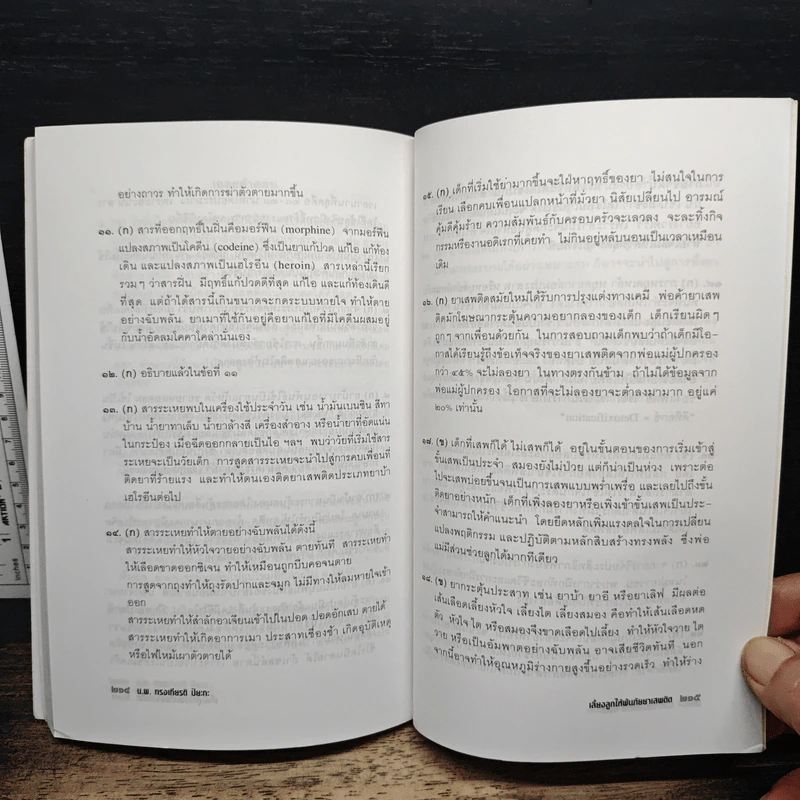 อย่างถาวร ทำให้เกิดการฆ่าตัวตายมากขึ้น
๑๑. (ก) สารที่ออกฤทธิ์ในฝิ่นคือมอร์ฟีน (morphine) จากมอร์ฟีน
แปลงสภาพเป็นโคดีน (codeine) ซึ่งเป็นยาแก้ปวด แก้ไอ แก้ท้อง
เดิน และแปลงสภาพเป็นเฮโรอีน (heroin) สารเหล่านี้เรียก
รวมๆ ว่าสารฝิ่น มีฤทธิ์แก้ปวดดีที่สุด แก้ไอ และแก้ท้องเดินดี
ที่สุด แต่ถ้าได้สารนี้เกินขนาดจะกดระบบหายใจ ทำให้ตาย
อย่างฉับพลัน ยาเมาที่ใช้กินอยู่คือยาแก้ไอที่มีโคดีนผสมอยู่
กับน้ำอัดลมโคคาโคล่านั่นเอง
๑๒. (ก) อธิบายแล้วในข้อที่ ๑๑
๑๓. (ก) สารระเหยพบในเครื่องใช้ประจำวัน เช่น น้ำมันเบนซิน สีทา
บ้าน น้ำยาทาเล็บ น้ำยาล้างสี เครื่องสำอาง หรือน้ำยาที่อัดแน่น
ในกระป๋อง เมื่อฉีดออกกลายเป็นไอ ฯลฯ พบว่าวัยที่เริ่มใช้สาร
ระเหยจะเป็นวัยเด็ก การสูดสารระเหยจะนำไปสู่การคบเพื่อนที่
ติดยาที่ร้ายแรง และทำให้ตนเองติดยาเสพติดประเภทยาบ้า
เฮโรอีนต่อไป
๑๔. (ก) สารระเหยทำให้ตายอย่างฉับพลันได้ดังนี้
สารระเหยทำให้หัวใจวายอย่างฉับพลัน ตายทันที สารระเหยทำ
ให้เลือดขาดออกซิเจน ทำให้เหมือนถูกบีบคอจนตาย
การสูดจากถุงทำให้ถุงรัดปากและจมูก ไม่มีทางให้ลมหายใจเข้า
ออก
สารระเหยทำให้สำลักอาเจียนเข้าไปในปอด ปอดอักเสบ ตายได้
สารระเหยทำให้เกิดอาการเมา ประสาทเชื่องช้า เกิดอุบัติเหตุ
หรือไฟไหม้เผาตัวตายได้
๒๑๔ น.พ. ทรงเกียรติ ปิยะกะ
๑๕. (ก) เด็กที่เริ่มใช้ยามากขึ้นจะใฝ่หาฤทธิ์ของยา ไม่สนใจในการ
เรียน เลือกคบเพื่อนแปลกหน้าที่มั่วยา นิสัยเปลี่ยนไป อารมณ์
คุ้มดีคุ้มร้าย ความสัมพันธ์กับครอบครัวจะเลวลง จะละทิ้งกิจ
กรรมหรืองานอดิเรกที่เคยทำ ไม่กินอยู่หลับนอนเป็นเวลาเหมือน
เดิม
๑๖. (ก) ยาเสพติดสมัยใหม่ได้รับการปรุงแต่งทางเคมี พ่อค้ายาเสพ
ติดมักโฆษณากระตุ้นความอยากลองของเด็ก เด็กเรียนผิดๆ
ถูกๆ จากเพื่อนด้วยกัน ในการสอบถามเด็กพบว่าถ้าเด็กมีโอ-
กาสได้เรียนรู้ถึงข้อเท็จจริงของยาเสพติดจากพ่อแม่ผู้ปกครอง
กว่า ๔๕% จะไม่ลองยา ในทางตรงกันข้าม ถ้าไม่ได้ข้อมูลจาก
พ่อแม่ผู้ปกครอง โอกาสที่จะไม่ลองยาจะต่ำลงมามาก อยู่แค่
๒๐% เท่านั้น
๑๗. (ข) เด็กที่เสพก็ได้ ไม่เสพก็ได้ อยู่ในขั้นตอนของการเริ่มเข้าสู่
ขั้นเสพเป็นประจำ สมองยังไม่ป่วย แต่ก็น่าเป็นห่วง เพราะต่อ
ไปจะเสพบ่อยขึ้นจนเป็นการเสพแบบพร่ำเพรื่อ และเลยไปถึงขั้น
ติดยาอย่างหนัก เด็กที่เพิ่งลองยาหรือเพิ่งเข้าขั้นเสพเป็นประ-
จำสามารถให้คำแนะนำ โดยยึดหลักเพิ่มแรงดลใจในการเปลี่ยน
แปลงพฤติกรรม และปฏิบัติตามหลักสิบสร้างทรงพลัง ซึ่งพ่อ
แม่มีส่วนช่วยลูกได้มากทีเดียว
๑๘. (ข) ยากระตุ้นประสาท เช่น ยาบ้า ยาอี หรือยาเลิฟ มีผลต่อ
เส้นเลือดเลี้ยงหัวใจ เลี้ยงไต เลี้ยงสมอง คือทำให้เส้นเลือดหด
ตัว หัวใจ ไต หรือสมองจึงขาดเลือดไปเลี้ยง ทำให้หัวใจวาย ไต
วาย หรือเป็นอัมพาตอย่างฉับพลัน อาจเสียชีวิตทันที นอก
จากนี้อาจทำให้อุณหภูมิร่างกายสูงขึ้นอย่างรวดเร็ว ทำให้ร่าง
เลี้ยงลูกให้พ้นภัยยาเสพติด ๒๑๕